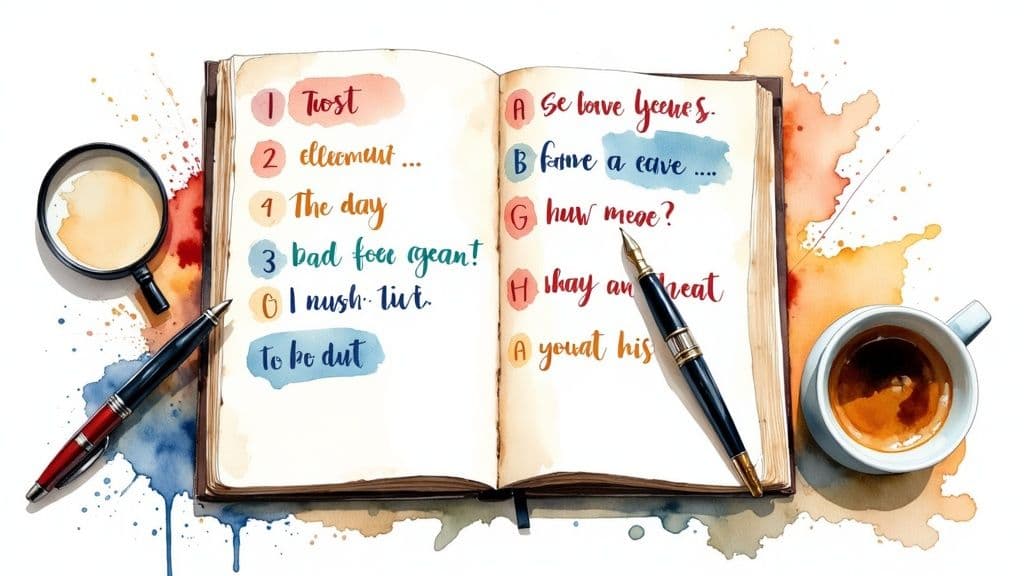 1 Tost
2 ellecmut ...
4 The day
3 bad foee gean!
0 I nush. Tivt.
to be dut
A Se bove Yeeues.
B a eave ....
G huw meoe?
H ihay an heat
A youat his